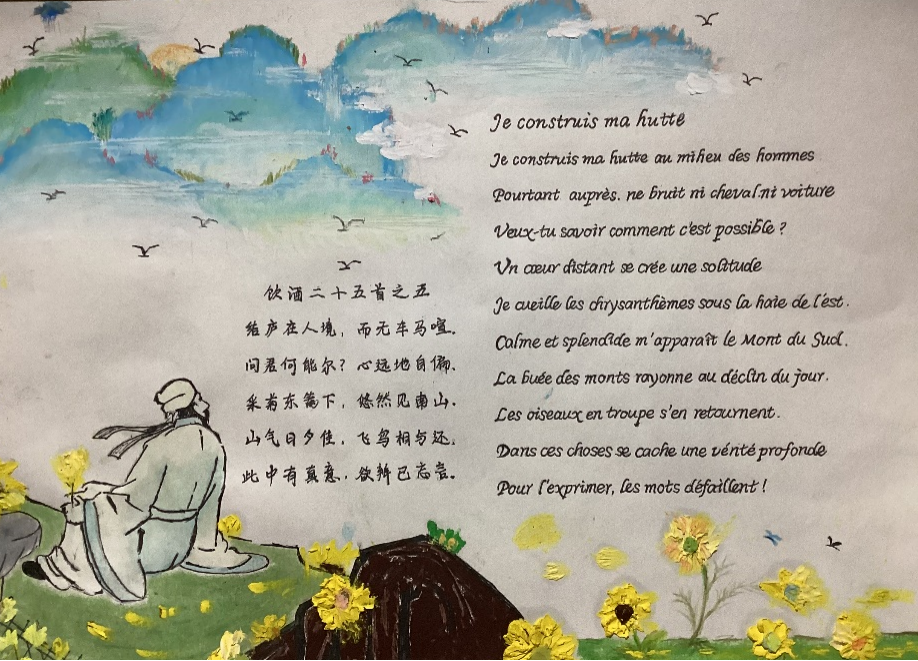 饮酒二十五首之五
结庐在人境，而无车马喧.
问君何能尔？心远地自偏.
采菊东篱下，悠然见南山.
山气日夕佳，飞鸟相与还.
此中有真意，欲辨已忘言.
Je construis ma hutte
Je construis ma hutte au milieu des hommes
Pourtant auprès. ne bruit ni cheval.ni voiture
Veux-tu savoir comment c'est possible ?
Un cœur distant se crée une solitude
Je cueille les chrysanthèmes sous la haie de l'est.
Calme et splendide m'apparaît le Mont du Sud.
La buée des monts rayonne au déclin du jour.
Les oiseaux en troupe s'en retournent.
Dans ces choses se cache une vérité profonde
Pour l'exprimer, les mots défaillent !